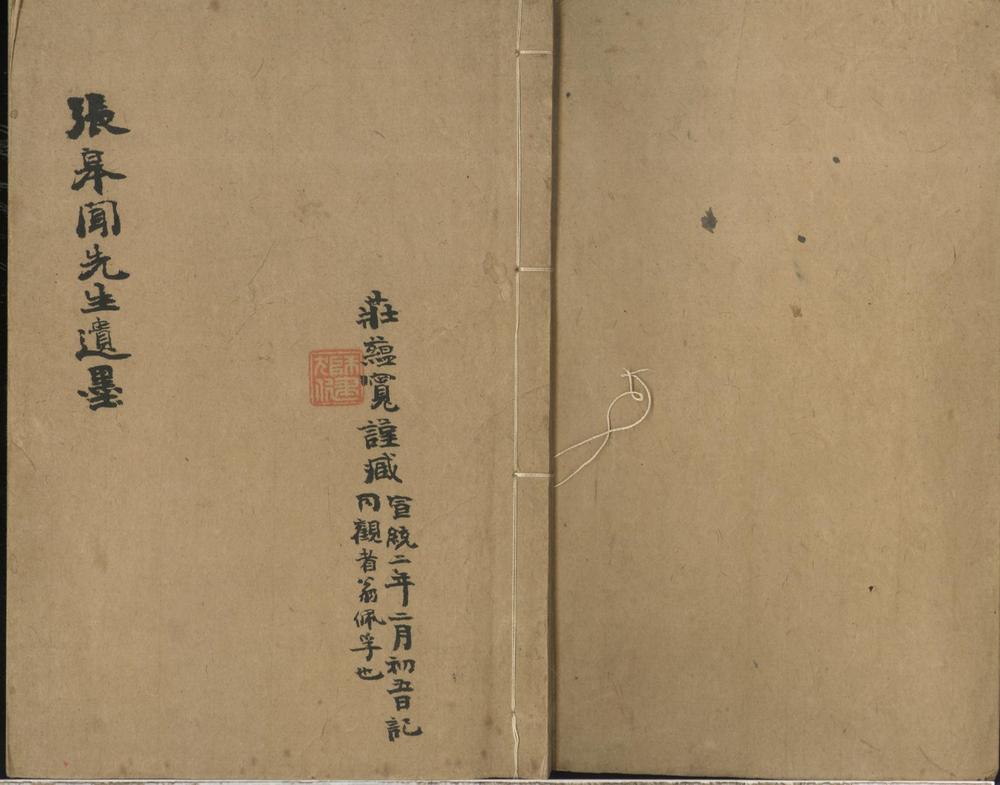 莊蘊寬謹臧
宣統二年二月初五日記
同觀者翁佩孚也
張皋聞先生遺墨